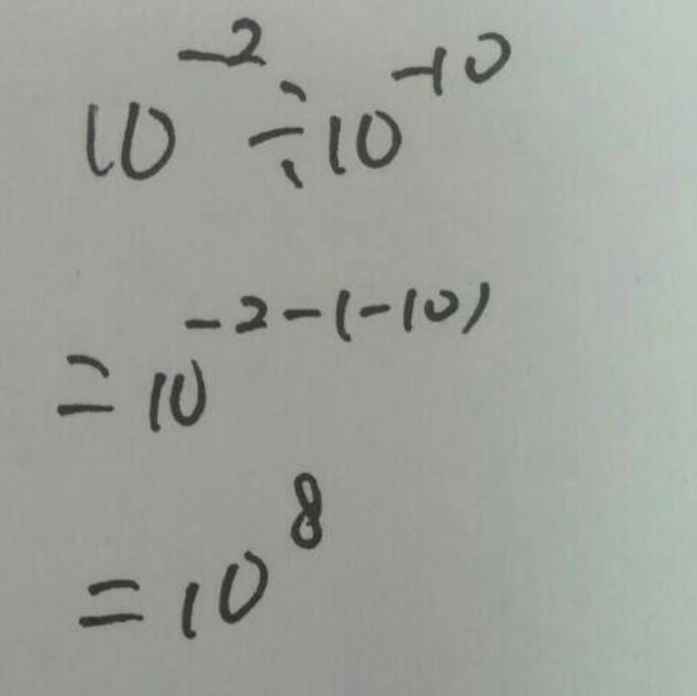 10⁻² ÷ 10⁻¹⁰
= 10⁻²⁻⁽⁻¹⁰⁾
= 10⁸